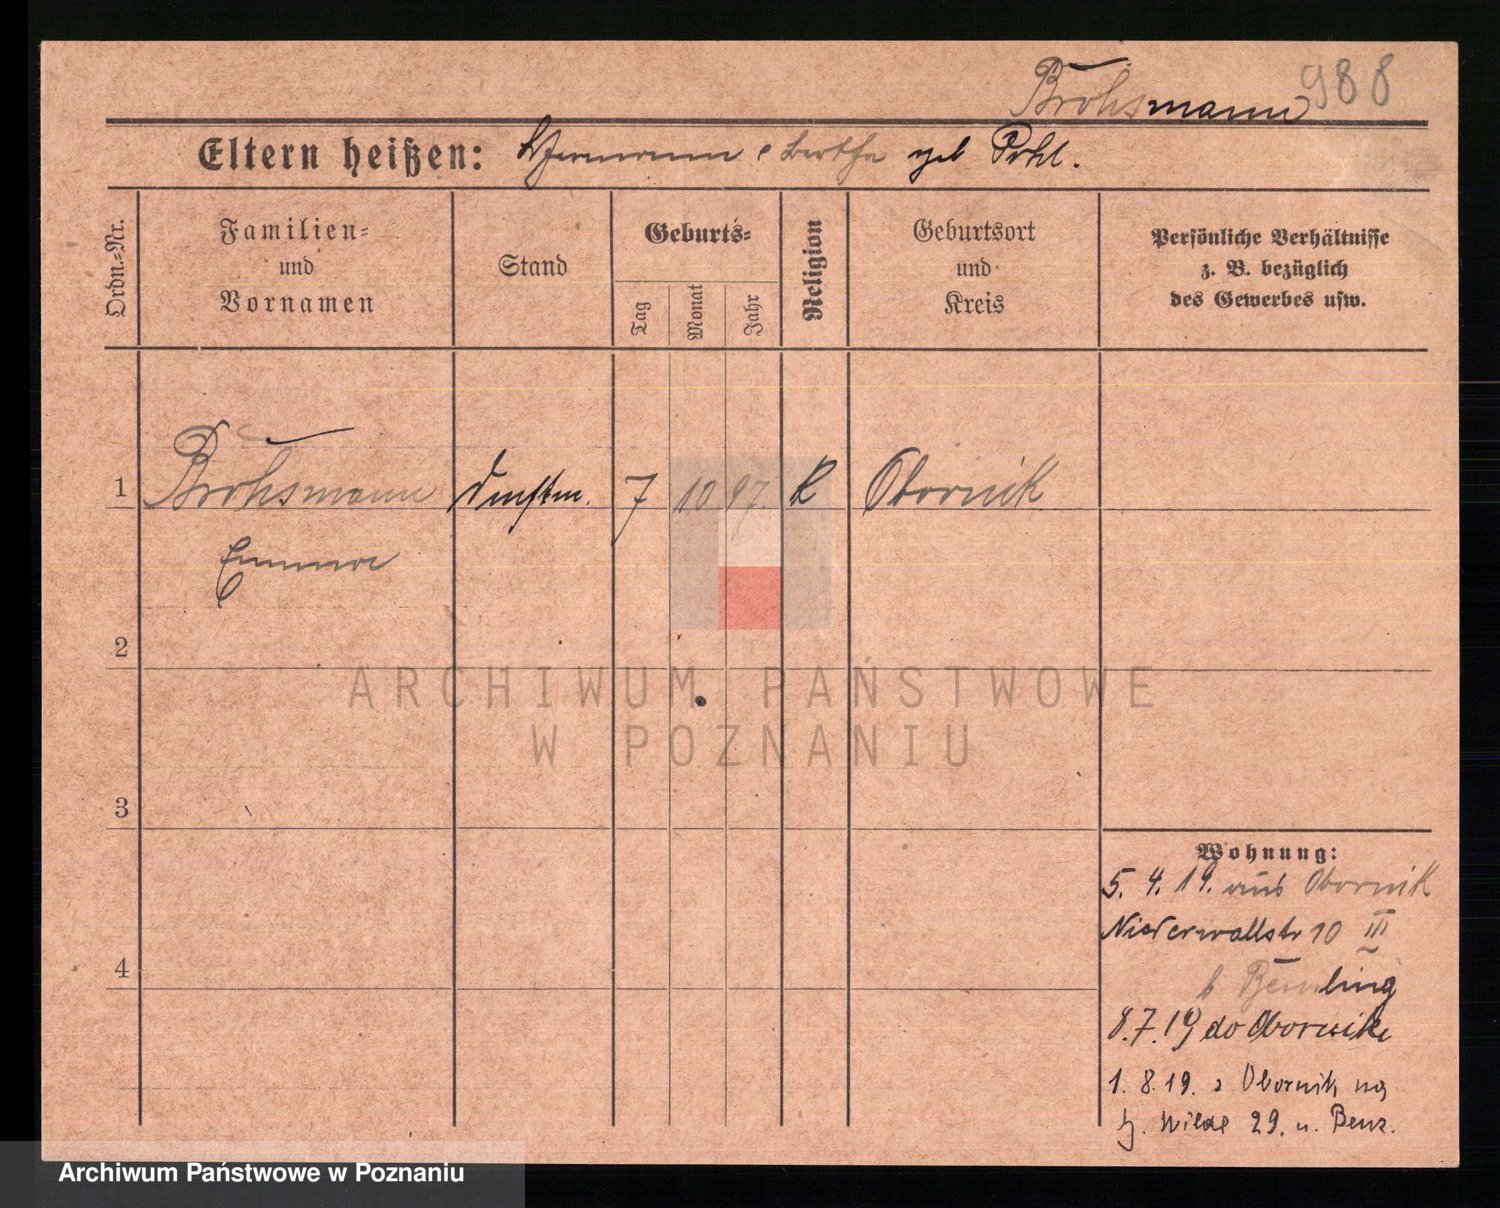 Brohsmann 988
Eltern heißen: Hermann e Bertha geb Pohl.
Ordn.-Nr.
Familien-
und
Vornamen
Stand
Geburts-
Tag
Monat
Jahr
Religion
Geburtsort
und
Kreis
Persönliche Verhältnisse
z. B. bezüglich
des Gewerbes usw.
1 Brohsmann 7 10 97. k Obornik
Emma
2
3
4
Wohnung:
5. 4. 19. aus Obornik
Niederwallstr 10 III
b
8.7.19 do Obornike
1. 8.19. z Obornik na
29. u. Benz.
ARCHIWUM PAŃSTWOWE
W POZNANIU
Archiwum Państwowe w Poznaniu